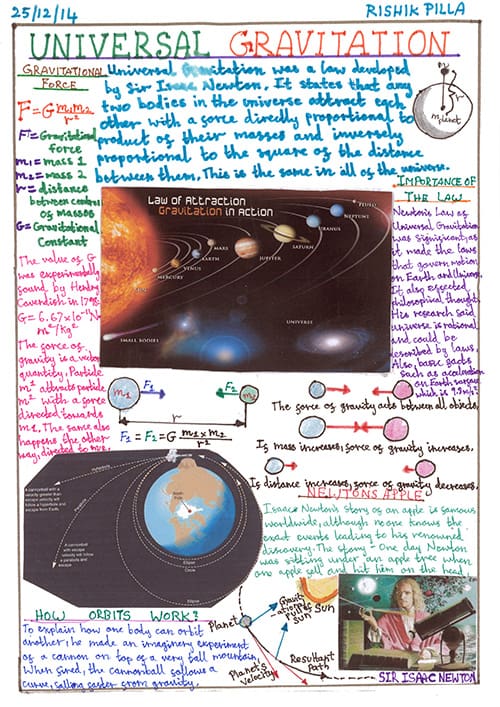 25/12/14
RISHIK PILLA
UNIVERSAL GRAVITATION
GRAVITATIONAL
FORCE
F=G m1m2
r²
F= Gravitational
force
m1 = mass 1
m2 = mass 2
r = distance
between centres
of masses
G = Gravitational
Constant
Universal Gravitation was a law developed
by Sir Isaac Newton. It states that any
two bodies in the universe attract each
other with a force directly proportional to
product of their masses and inversely
proportional to the square of the distance
between them. This is the same in all of the universe.
m
r
m planet
The value of G
was experimentally
found by Henry
Cavendish in 1798.
G = 6.67x10⁻¹¹N
m²/kg²
The force of
gravity is a vector
quantity. Particle
m¹ attracts particle
m² with a force
directed towards
m1. The same also
happens the other
way, directed to m2.
Law of Attraction
Gravitation in Action
SUN
MERCURY
VENUS
EARTH
MARS
JUPITER
SATURN
URANUS
NEPTUNE
PLUTO
SMALL BODIES
UNIVERSE
IMPORTANCE OF
THE LAW
Newton's Law of
Universal Gravitation
was significant, as
it made the laws
that govern motion
on Earth and Universe.
It also affected
philosophical thought.
His research said
universe is rational
and could be
described by laws.
Also, basic facts
such as acceleration
on Earth surface
which is 9.8m/s².
m1
F1
F2
m2
r
F1 = F2 = G m1 x m2
r²
The force of gravity acts between all objects.
If mass increases, force of gravity increases.
If distance increases, force of gravity decreases.
Hyperbola
A cannonball with a
velocity greater than
escape velocity will
follow a hyperbola and
escape from Earth.
Parabola
A cannonball
with escape
velocity will
follow a parabola
and escape.
Ellipse
Circle
Ellipse
NEWTONS APPLE
Isaac Newton's story of an apple is famous
worldwide, although no one knows the
exact events leading to his renowned
discovery. The story - One day Newton
was sitting under an apple tree when
one apple fell and hit him on the head
HOW ORBITS WORK?
To explain how one body can orbit
another, he made an imaginary experiment
of a cannon on top of a very tall mountain.
When fired, the cannonball follows a
curve, falling faster from gravity.
Planet
Gravit
-ational
pull of
sun
Sun
Planet's
velocity
Resultant
path
SIR ISAAC NEWTON